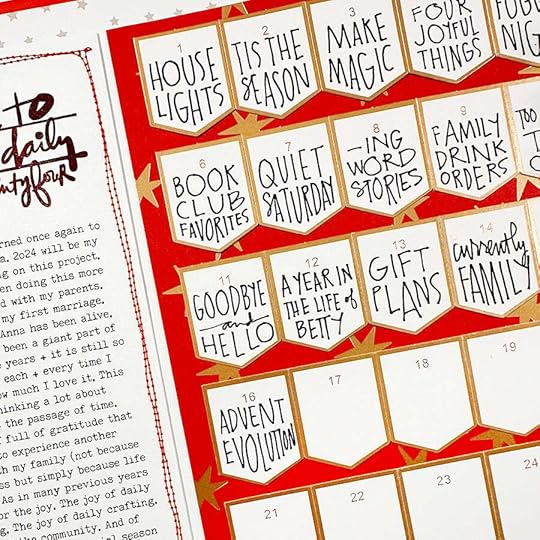 TO
daily
rned once again to
a. 2024 will be my
ng on this project.
en doing this more
d with my parents.
my first marriage.
Anna has been alive.
been a giant part of
e years + it is still so
each + every time I
ow much I love it. This
hinking a lot about
the passage of time.
full of gratitude that
to experience another
th my family (not because
ss but simply because life
As in many previous years
for the joy. The joy of daily
g. The joy of daily crafting.
the community. And of
season
1
HOUSE
LIGHTS
2
'TIS THE
SEASON
3
MAKE
MAGIC
FOUR
JOYFUL
THINGS
NIG
6
BOOK
CLUB
FAVORITES
7
QUIET
SATURDAY
8
-ING
WORD
STORIES
9
FAMILY
DRINK
ORDERS
TOO
11
GOODBYE
and
HELLO
12
A YEAR IN
THE LIFE of
BETTY
13
GIFT
PLANS
14
currently
FAMILY
16
ADVENT
EVOLUTION
17
18
19
21
22
23
24